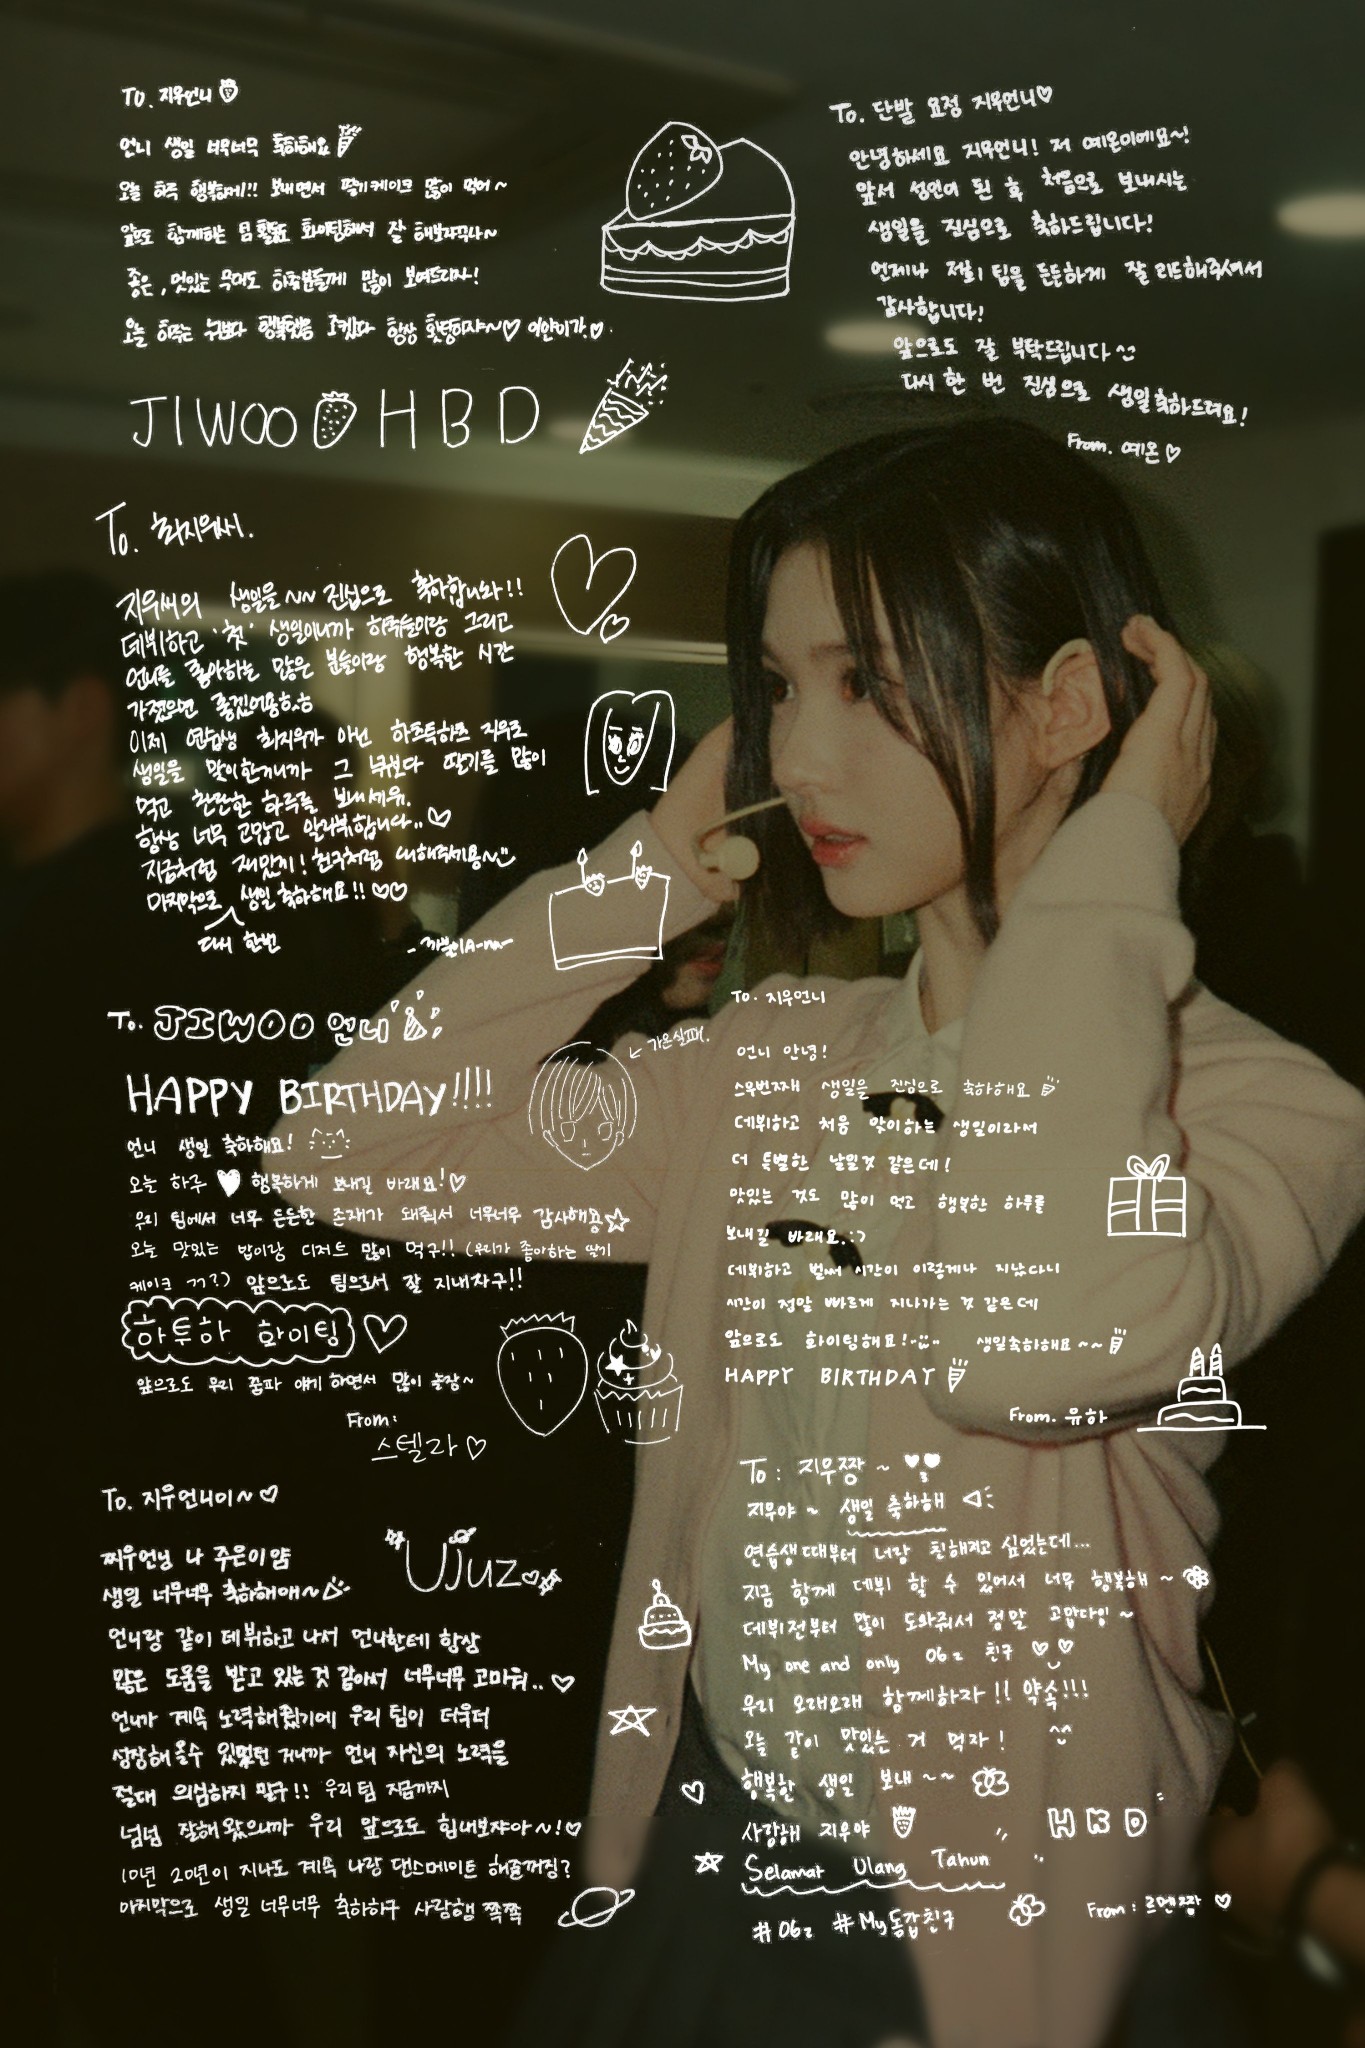 To. 지우언니
언니 생일 너무너무 축하해요
오늘 하루 행복하게!! 보내면서 딸기케이크 많이 먹어~
앞으로 함께하는 팀 활동도 화이팅해서 잘 해보자구나~
좋은, 멋있는 무대도 하츄분들께 많이 보여드리자!
오늘 하루는 누구보다 행복했음 조켔다 항상 홧팅하쟈~♡ 이안이가.♡
JIWOO HBD
To. 단발 요정 지우언니♡
안녕하세요 지우언니! 저 예온이에요~!
앞서 성인이 된 후 처음으로 보내시는
생일을 진심으로 축하드립니다!
언제나 저희 팀을 든든하게 잘 리드해주셔서
감사합니다!
앞으로도 잘 부탁드립니다^^
다시 한 번 진심으로 생일축하드려요!
From. 예온♡
To. 최지우씨.
지우씨의 생일을~~ 진심으로 축하합니다!!
데뷔하고 '첫' 생일이니까 하츄들이랑 그리고
언니를 좋아하는 많은 분들이랑 행복한 시간
가졌으면 좋겠어용ㅎ.ㅎ
이제 연습생 최지우가 아닌 하츠투하츠 지우로
생일을 맞이한거니까 그 누구보다 딸기를 많이
먹고 찬란한 하루를 보내세유.
항상 너무 고맙고 알러뷰합니다..♡
지금처럼 재밌게! 친구처럼 대해주세용~
마지막으로 생일축하해요!!♡♡
다시 한번
To. JIWOO 언니
HAPPY BIRTHDAY!!!!
언니 생일 축하해요!
오늘 하루 ♥ 행복하게 보내길 바래요!♡
우리 팀에서 너무 든든한 존재가 돼줘서 너무너무 감사해용☆
오늘 맛있는 밥이랑 디저트 많이 먹구!! (우리가 좋아하는 딸기
케이크 ㄱㄱ?) 앞으로도 팀으로서 잘 지내자구!!
하투하 화이팅 ♡
앞으로도 우리 줄파 얘기 하면서 많이 놀장~
From:
스텔라♡
← 가은실패.
To. 지우언니
언니 안녕!
스무번째 생일을 진심으로 축하해요
데뷔하고 처음 맞이하는 생일이라서
더 특별한 날일것 같은데!
맛있는 것도 많이 먹고 행복한 하루를
보내길 바래요.:)
데뷔하고 벌써 시간이 이렇게나 지났다니
시간이 정말 빠르게 지나가는 것 같은데
앞으로도 화이팅해요! 생일축하해요~~
HAPPY BIRTHDAY
From. 유하
To. 지우언니이~♡
찌우언닝 나 주은이얌
생일 너무너무 축하해애~
Ujuz
언니랑 같이 데뷔하고 나서 언니한테 항상
많은 도움을 받고 있는 것 같아서 너무너무 고마워..♡
언니가 계속 노력해줬기에 우리 팀이 더욱더
성장해 올수 있었던 거니까 언니 자신의 노력을
절대 의심하지 말구!! 우리팀 지금까지
넘넘 잘해왔으니까 우리 앞으로도 힘내보쟈아~!♡
10년 20년이 지나도 계속 나랑 댄스메이트 해줄꺼징?
마지막으로 생일 너무너무 축하하구 사랑해 쪽쪽
To: 지우짱~
지우야~ 생일 축하해
연습생때부터 너랑 친해지고 싶었는데...
지금 함께 데뷔 할 수 있어서 너무 행복해~
데뷔전부터 많이 도와줘서 정말 고맙다잉~
My one and only 06z 친구
우리 오래오래 함께하자!! 약속!!!
오늘 같이 맛있는 거 먹자! ^^
행복한 생일 보내~~
사랑해 지우야
HBD
Selamat Ulang Tahun
#06z #My동갑친구
From: 르멘짱♡